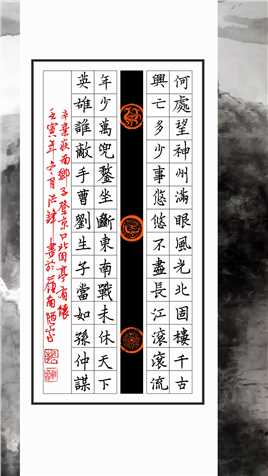 何處望神州滿眼風光北固樓千古
興亡多少事悠悠不盡長江滾滾流
年少萬兜鍪坐斷東南戰未休天下
英雄誰敵手曹劉生子當如孫仲謀
辛棄疾南鄉子登京口北固亭有懷
壬寅年冬月書於嶺南陋室